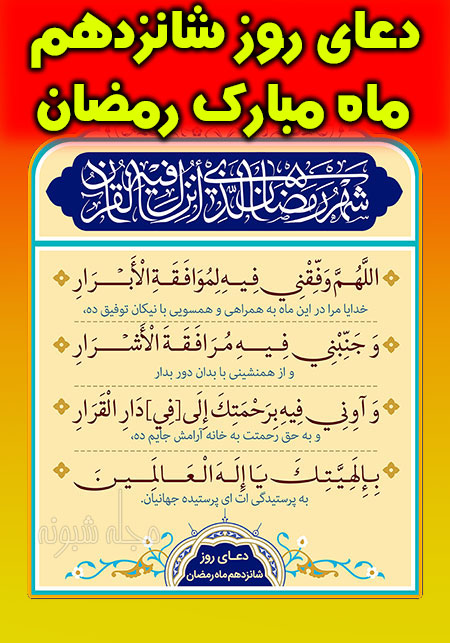 دعای روز شانزدهم
ماه مبارک رمضان
شهر رمضان الذی انزل فیه القرآن
اللَّهُمَّ وَفِّقْنِي فِيهِ لِمُوَافَقَةِ الْأَبْرَارِ
خدایا مرا در این ماه به همراهی و همسویی با نیکان توفیق ده،
وَ جَنِّبْنِي فِيهِ مُرَافَقَةَ الْأَشْرَارِ
و از همنشینی با بدان دور بدار
وَ آوِنِي فِيهِ بِرَحْمَتِكَ إِلَى [فِي] دَارِ الْقَرَارِ
و به حق رحمتت به خانه آرامش جایم ده،
بِإِلَهِيَّتِكَ يَا إِلَهَ الْعَالَمِينَ
به پرستیدگی ات ای پرستیده جهانیان.
مجله شبونه
دعای روز
شانزدهم ماه رمضان